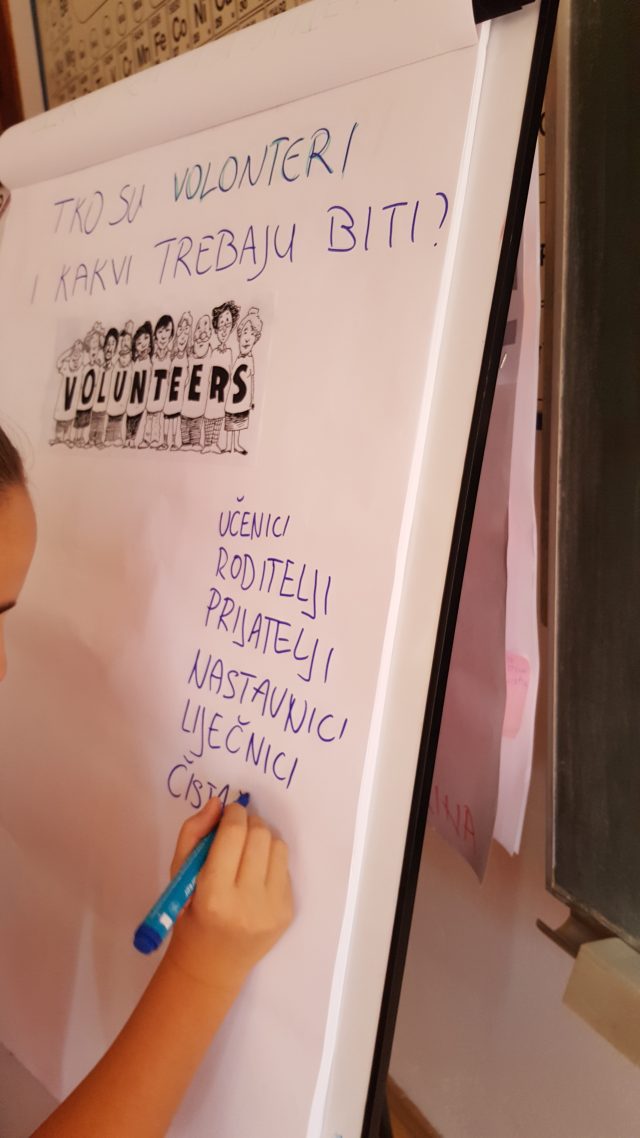 Cr Mn Fe Co Ni Cu
TKO SU VOLONTERI
I KAKVI TREBAJU BITI?
VOLUNTEERS
UČENICI
RODITELJI
PRIJATELJI
NASTAVNICI
LIJEČNICI
ČISTA